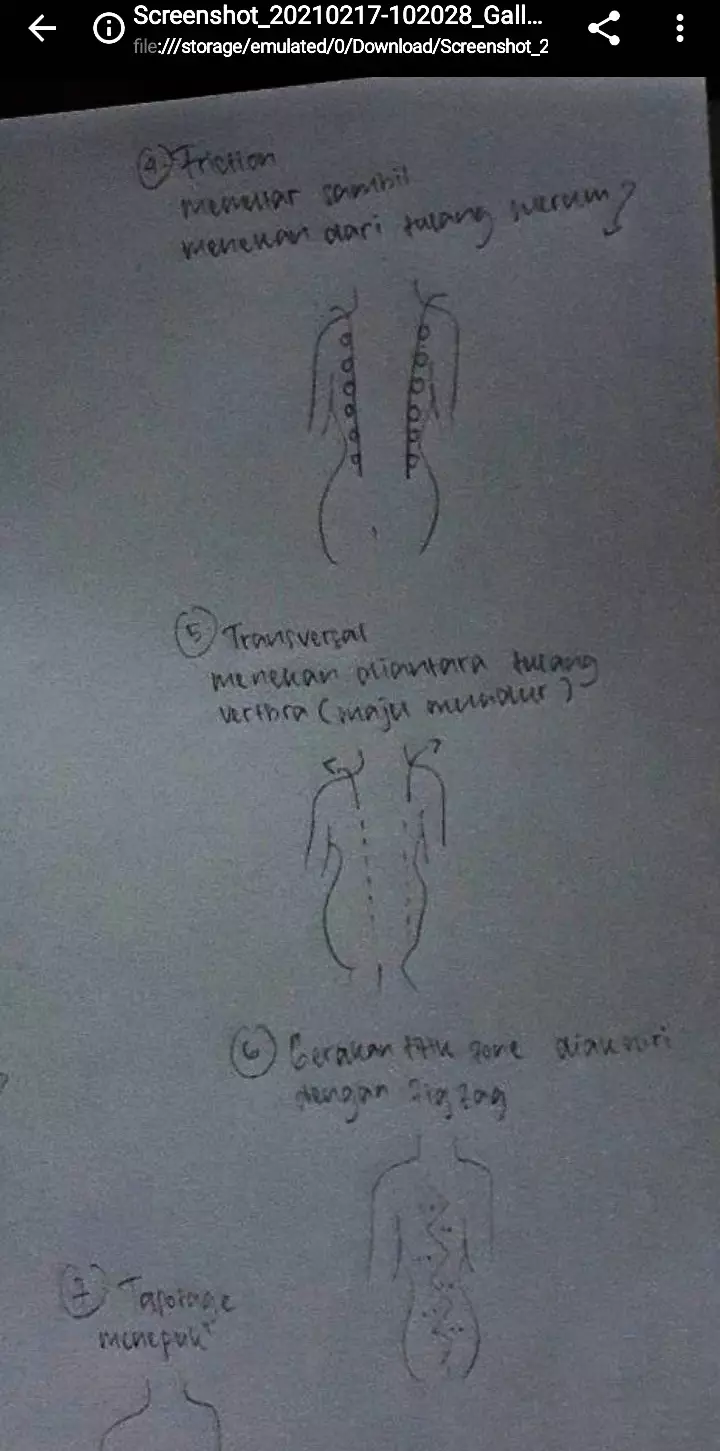 Screenshot_20210217-102028_Gall...
file:///storage/emulated/0/Download/Screenshot_2
④ Friction
memutar sambil
menekan dari tulang
⑤ Transversal
menekan diantara tulang
vertbra (maju mundur)
⑥ Gerakan titik zone diakhiri
dengan zigzag
⑦
menepuk"